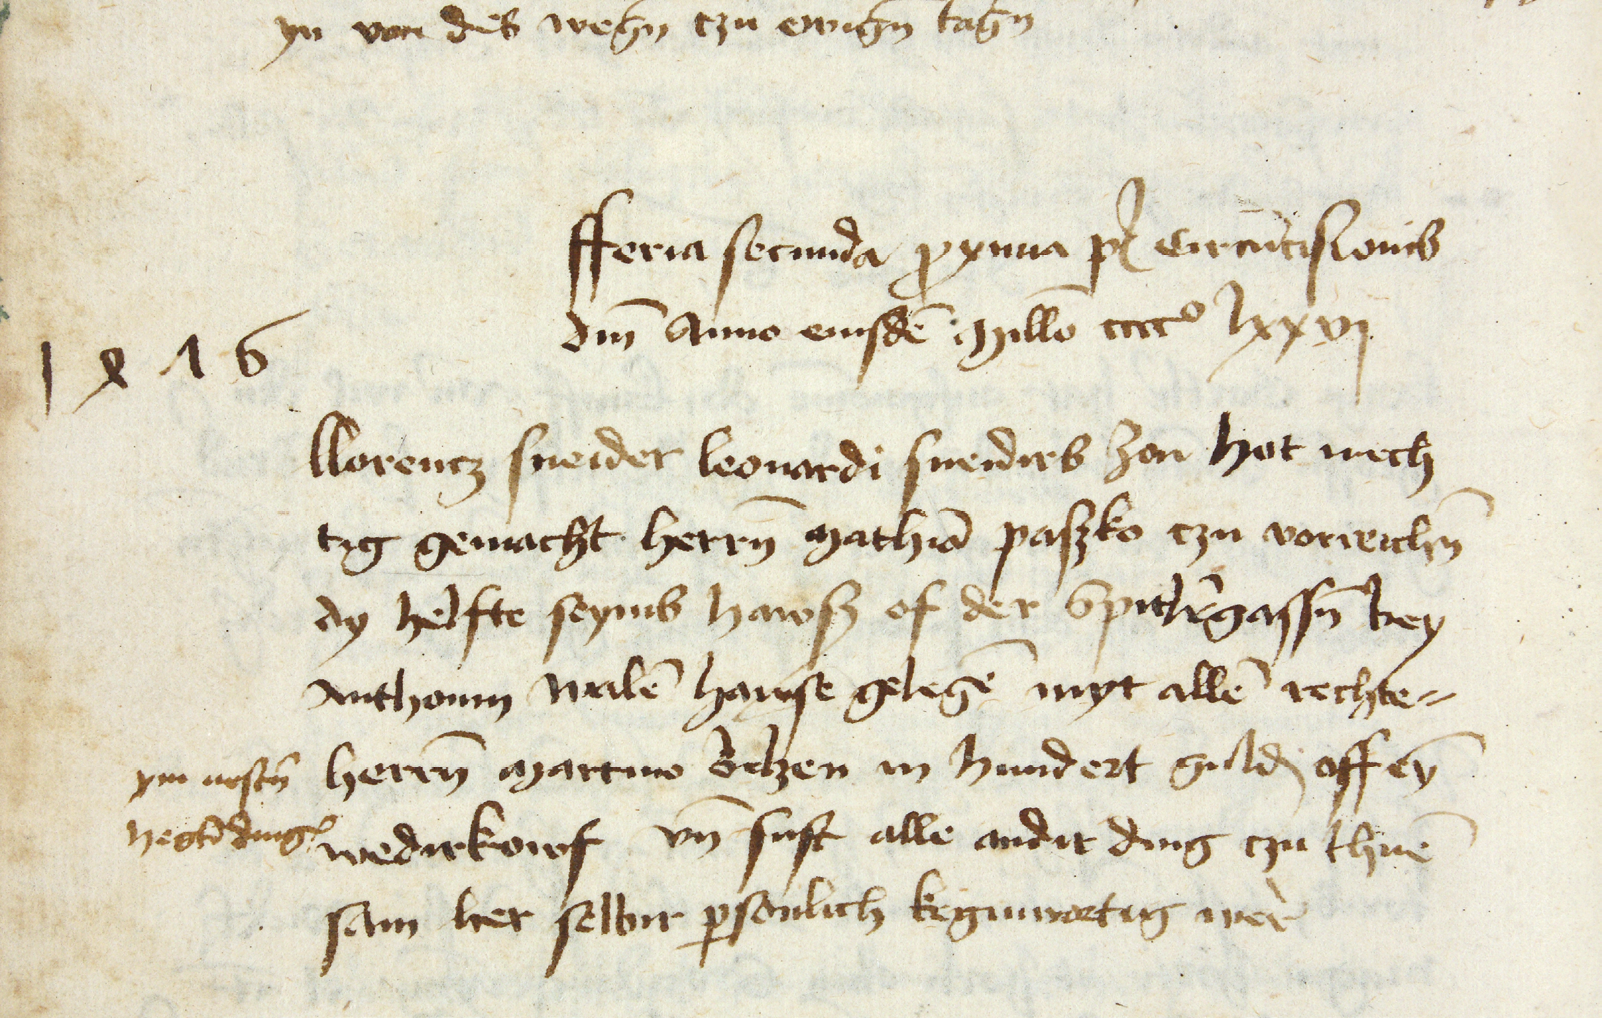 yn von des wegn̄ czu ewign̄ tagn̄
fferia secunda proxima pꝰ Circūcisionis
dnī Anno eiusdē Millō ccccº lxxvj
1476
llorencz sneider leonardi sneidirs zon hot mech
tig gemacht herrn̄ Mathiā paszko czu vorreichn̄
dy helfte seynis hawsz of der Spitlr̄gassn̄ bey
Anthonin walē hawse gelegē myt allē rechte=
herrn̄ Martino belzen in hundert guldn̄ off ey̅
wedirkowf vn̄ sust alle andir ding czu thuē
sam her selbir ꝑsonlich keginwortig wer
ym nestn̄
hegtē dinge